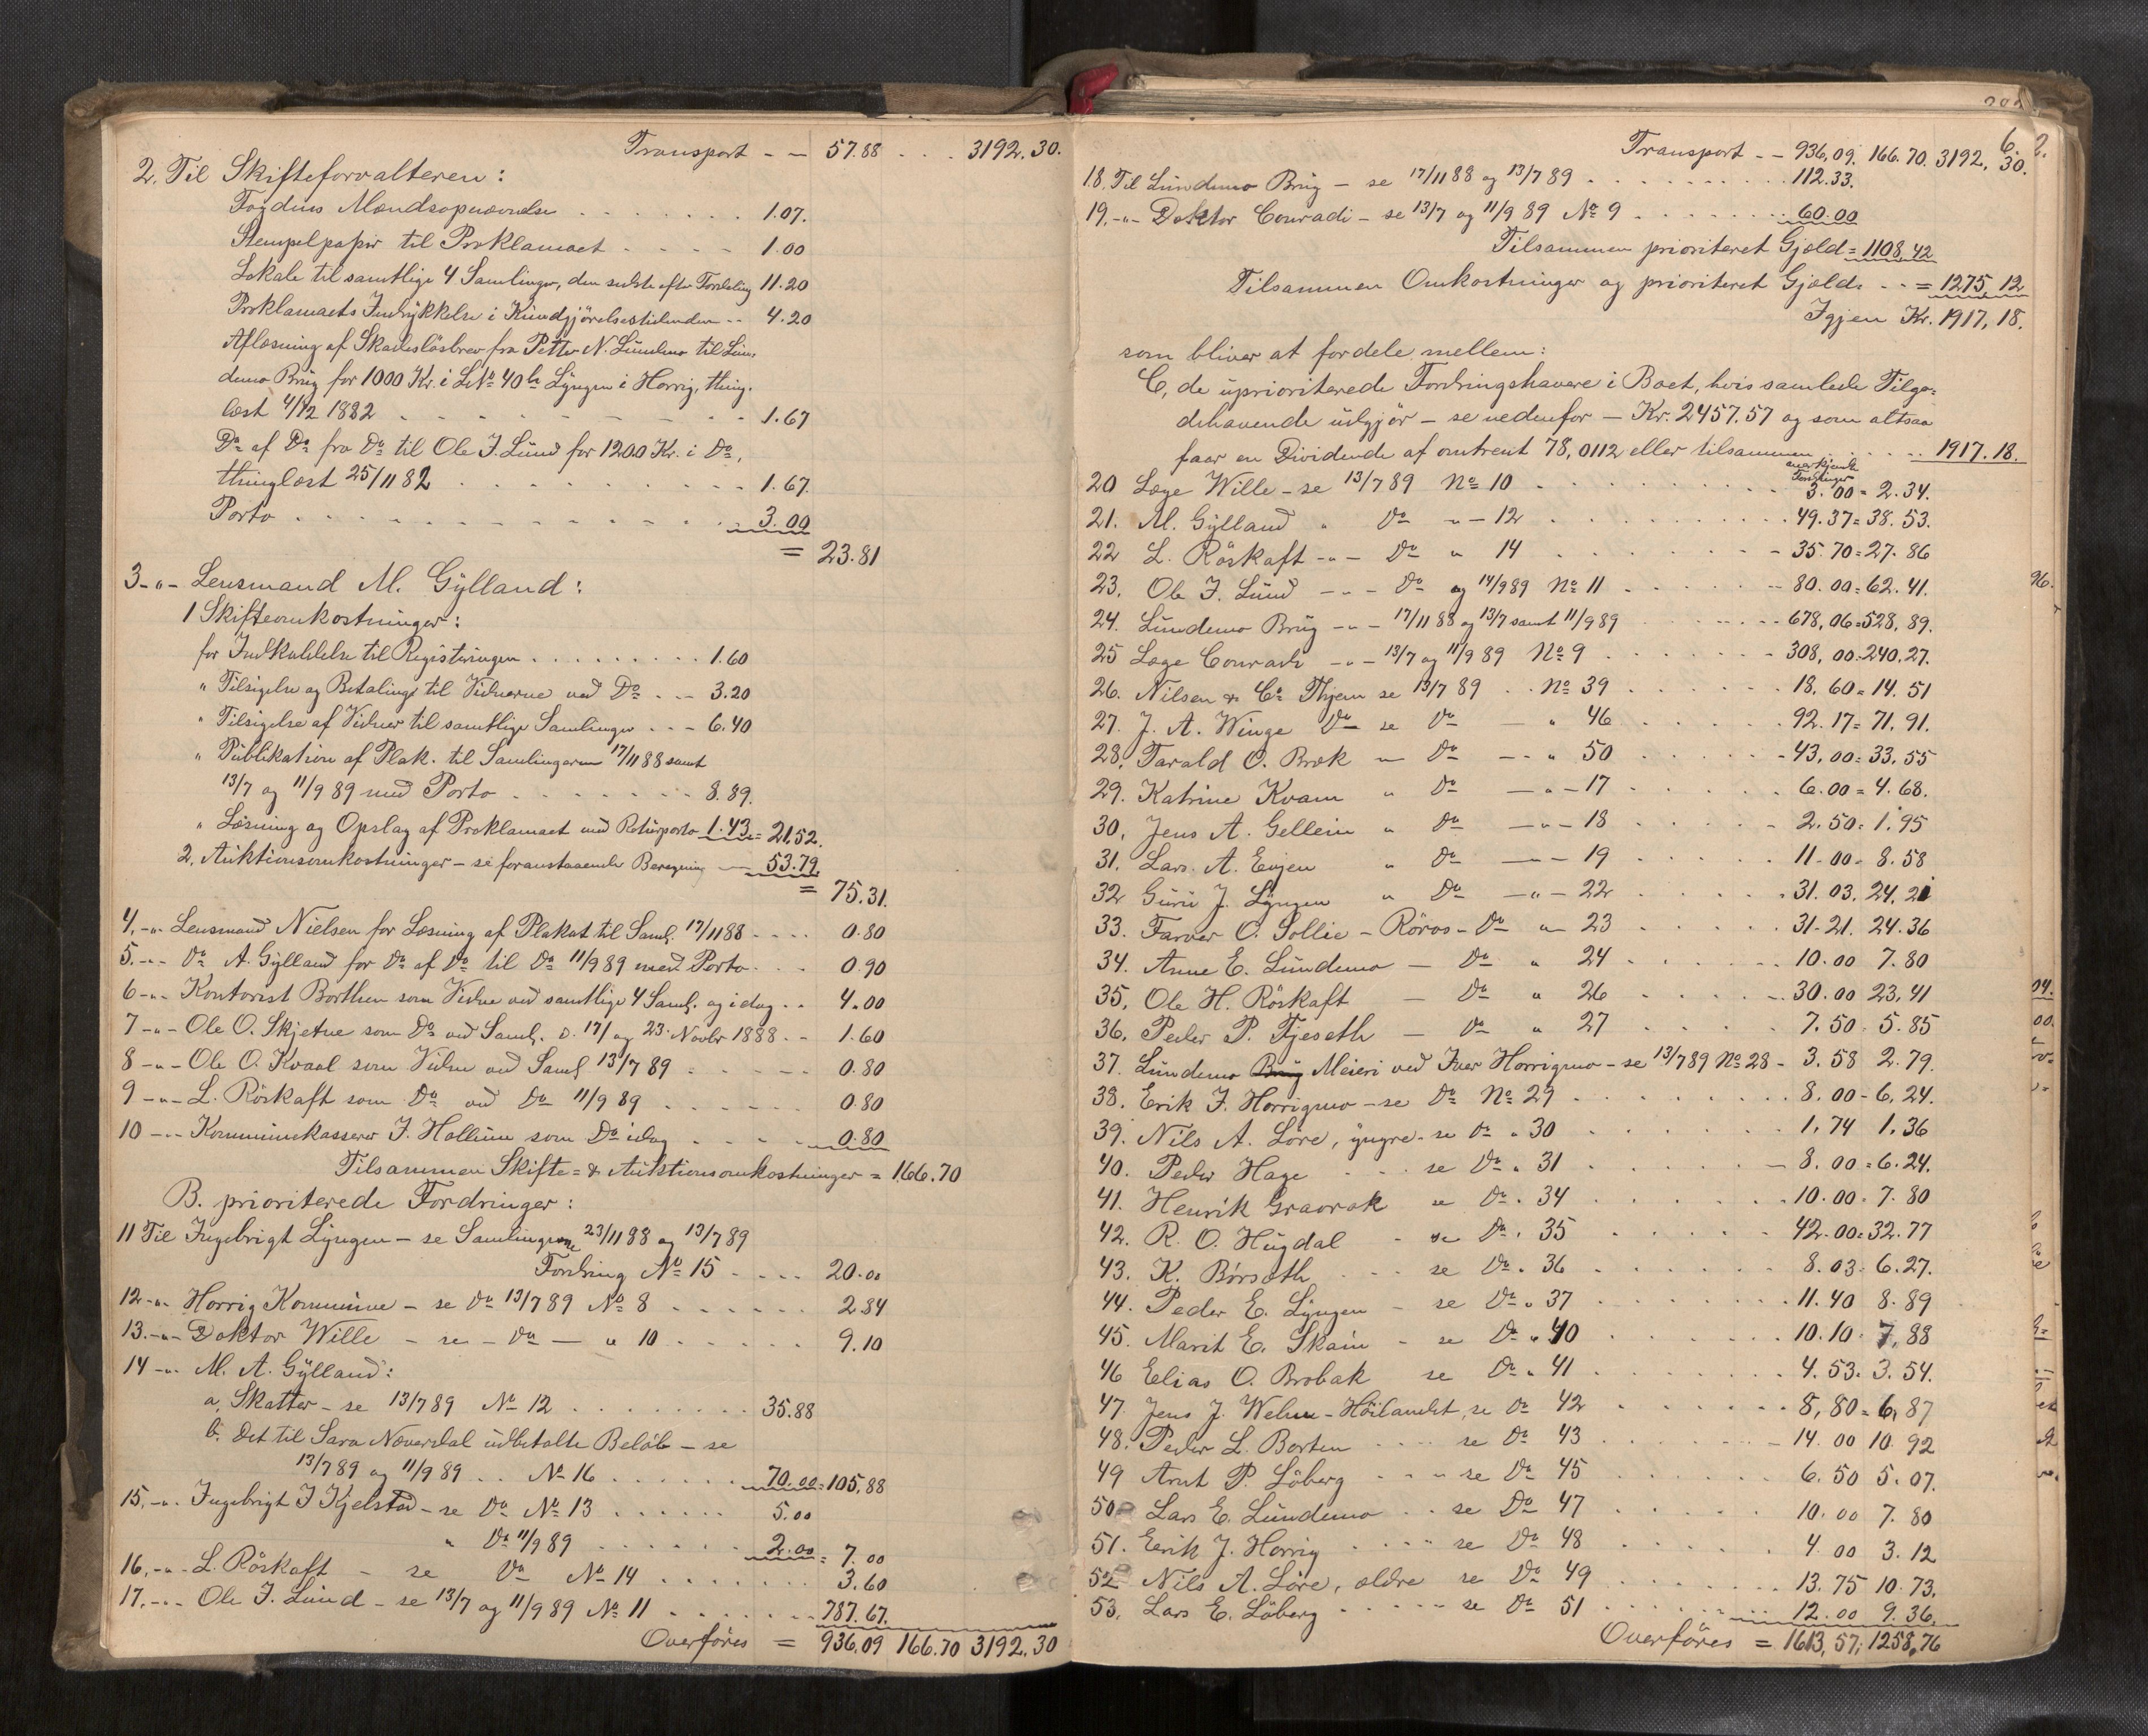 Transport - - 57.88 . . . 3192.30.
2. Til Skifteforvalteren:
Fogdens Mandsopnævnelse . . . . . . . 1.07.
Stempelpapir til Proklamaet . . . . 1.00
Lokale til samtlige 4 Samlinger, den sidste efter Fordeling 11.20
Proklamaets Indrykkelse i Kundgjörelsestidenden . . 4.20
Aflæsning af Skadeslösbrev fra Petter N. Lundemo til Lun-
demo Brug for 1000 Kr. i LNo 40 b Lyngen i Horrig, thing-
læst 4/12 1882 . . . . . . . . . 1.67
Do af Do fra Do til Ole J. Lund for 1200 Kr. i Do,
thinglæst 25/11 82 . . . . . . . . . 1.67.
Porto . . . . . . . . . . . . . . 3.00
= 23.81
3-"- Lensmand M. Gylland:
1 Skifteomkostninger:
for Indkaldelse til Registeringen . . . . . . . . . 1.60
" Tilsigelse og Betaling til Vidnerne ved Do . . - 3.20
" Tilsigelse af Vidner til samtlige Samlinger . . - 6.40
" Publikation af Plak. til Samlingerne 17/11 88 samt
13/7 og 11/9 89 med Porto . . . . . . . 8.89.
" Læsning og Opslag af Proklamaet med Returporto 1.43 = 21.52.
2. Auktionsomkostninger - se foranstaaende Beregning — 53.79
= 75.31.
4.-"- Lensmand Nielsen for Læsning af Plakat til Saml. 17/11 88 . . . . 0.80
5.-"- Do A. Gylland for Do af Do til Do 11/9 89 med Porto . . . 0.90
6-"- Kontorist Borthen som Vidne ved samtlige 4 Saml. og idag . . 4.00
7-"- Ole O. Skjetne som Do ved Saml. d. 17/ og 23. Novbr 1888 . . 1.60
8-"- Ole O. Kvaal som Vidne ved Saml 13/7 89 . . . . . 0.80
9-"- L. Röskaft som Do ved Do 11/9 89 . . . . . . 0.80
10-"- Kommunekasserer J. Hollum som Do idag . . . . . 0.80
Tilsammen Skifte- & Auktionsomkostninger = 166.70
B. prioriterede Fordringer:
11 Til Ingebrigt Lyngen - se Samlingerne 23/11 88 og 13/7 89
Fordring No 15 . . . . 20.00
12-"- Horrig Kommune - se Do 13/7 89 No 8 . . . . . . 2.84
13.-"- Doktor Wille - se - Do — " 10 . . . . . . 9.10
14-"- M. A. Gylland:
a, Skatter - se 13/7 89 No 12 . . . . . . . . 35.88
b. Det til Sara Næverdal udbetalte Beløb - se
13/7 89 og 11/9 89 . . No 16 . . . . . . 70.00 = 105.88
15.-"- Ingebrigt J Kjelstad - se Do No 13 . . . . . . 5.00
" Do 11/9 89 . . . . . . 2.00 = 7.00
16.-"- L. Röskaft - se Do No 14 . . . . . . . 3.60
17.-"- Ole J. Lund - se 13/7 og 11/9 89 No 11 . . . . . . . 787.67.
Overföres = 936.09 166.70 3192.30
Transport - - 936,09. 166.70. 3192.30.
18. Til Lundemo Brug - se 17/11 88 og 13/7 89 . . . . . . . . . 112.33.
19.-"- Doktor Conradi - se 13/7 og 11/9 89 No 9 . . . . . . . . 60.00
Tilsammen prioriteret Gjæld = 1108,42
Tilsammen Omkostninger og prioriteret Gjæld . . . = 1275,12
Igjen Kr. 1917,18.
som bliver at fordele mellem:
C, de uprioriterede Fordringshavere i Boet, hvis samlede Tilgo-
dehavende udgjør - se nedenfor - Kr. 2457.57 og som altsaa
faar en Dividende af omtrent 78,0112 eller tilsammen . . . . . . 1917.18.
anerkjendte
Fordringer
20 Læge Wille - se 13/7 89 No 10 . . . . . . . . . . 3.00 = 2.34.
21. M. Gylland " Do -"- 12 . . . . . . . . . . 49.37 = 38.53.
22 L. Röskaft -"- Do " 14 . . . . . . . . - 35.70 = 27.86
23. Ole J. Lund - - - Do og 14/9 89 No 11 . . . . . . - 80.00 = 62.41.
24. Lundemo Brug -"- 17/11 88 og 13/7 samt 11/9 89 . . . . . . . 678,06 = 528,89.
25 Læge Conradi -"- 13/7 og 11/9 89 No 9 . . . . . . - 308,00 = 240.27.
26. Nilsen & Co Thjem se 13/7 89 . . No 39 . . . . . . . 18.60 = 14.51
27. J. A. Winge Do se Do — " 46 . . . . . . 92.17 = 71,91.
28. Tarald O. Bræk — Do - - " 50 . . . . . - 43,00 = 33,55
29. Katrine Kvam " Do -"- 17 . . . . . . 6.00 = 4.68.
30. Jens A. Gellein " Do -"- 18 . . . . . . 2.50 = 1.95
31. Lars. A. Evjen " Do -"- 19 . . . . . . 11-00 = 8.58
32 Guru J. Lyngen " Do -"- 22 . . . . . . 31.03. 24,21
33. Farver O. Sollie - Röros - Do " 23 . . . . . 31-21. 24.36
34. Anne E. Lundemo — Do " 24 . . . . . . . 10.00 7.80
35. Ole H. Röskaft — Do " 26 . . . . . . . 30.00 23,41
36. Peder P. Fjeseth — Do " 27 . . . . . 7.50 . 5.85
37. Lundemo Brug Meieri ved Iver Horrigmo - se 13/7 89 No 28 - 3.58 2.79.
38. Erik J. Horrigmo - se Do No 29 . . . . . . . . . 8.00 - 6,24.
39. Nils A. Löre, yngre - se Do " 30 . . . . . . . 1,74 1.36
40. Peder Hage . . . se Do " 31 . . . . . . . 8.00 = 6.24.
41. Henrik Gravrak se Do . 34 . . . . . . . 10.00 . 7.80
42. R. O. Hugdal - se Do . 35 . . . . . . 42.00 = 32.77
43. K. Börseth . . . se Do . 36 . . . . . . . 8.03 = 6.27.
44. Peder E. Lyngen - se Do . 37 . . . . . . . . 11.40 8.89
45. Marit E. Skain - se Do " 40 . . . . . . . 10.10 . 7,88
46 Elias O. Brobak se Do " 41 . . . . . . . . 4.53 . 3.54.
47 Jens J. Welum - Höilandet, se Do 42 . . . . . . . 8,80 = 6,87
48. Peder L. Borten . . . . se Do 43 . . . . . . . - 14.00 10.92
49 Arnt P. Löberg . . . - se Do 45 . . . . . . . 6.50 5.07.
50 Lars E. Lundemo . . se Do 47 . . . . . . 10.00 7.80
51. Eerik J. Horrig . . . . se Do 48 . . . . . . . 4 00 3.12
52 Nils A. Löre, ældre se Do 49 . . . . . . . . 13.75 10.73.
53. Lars E. Löberg . . . . . - se Do 51 . . . . . . . . 12.00 9.36.
Overföres = 1613,57; 1258,76